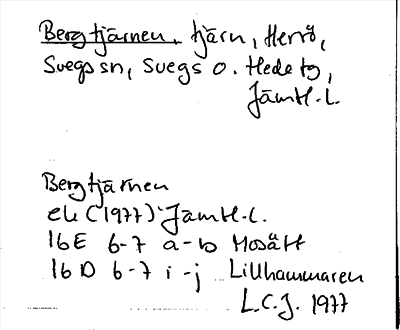 Bergtjärnen, tjärn, Herrö,
Svegs sn, Svegs o. Hede tg,
Jämtl. L.
Bergtjärnen
ek (1977) Jämtl. L.
16E 6-7 a-b Mosätt
16D 6-7 i-j Lillhammaren
L.C.J. 1977